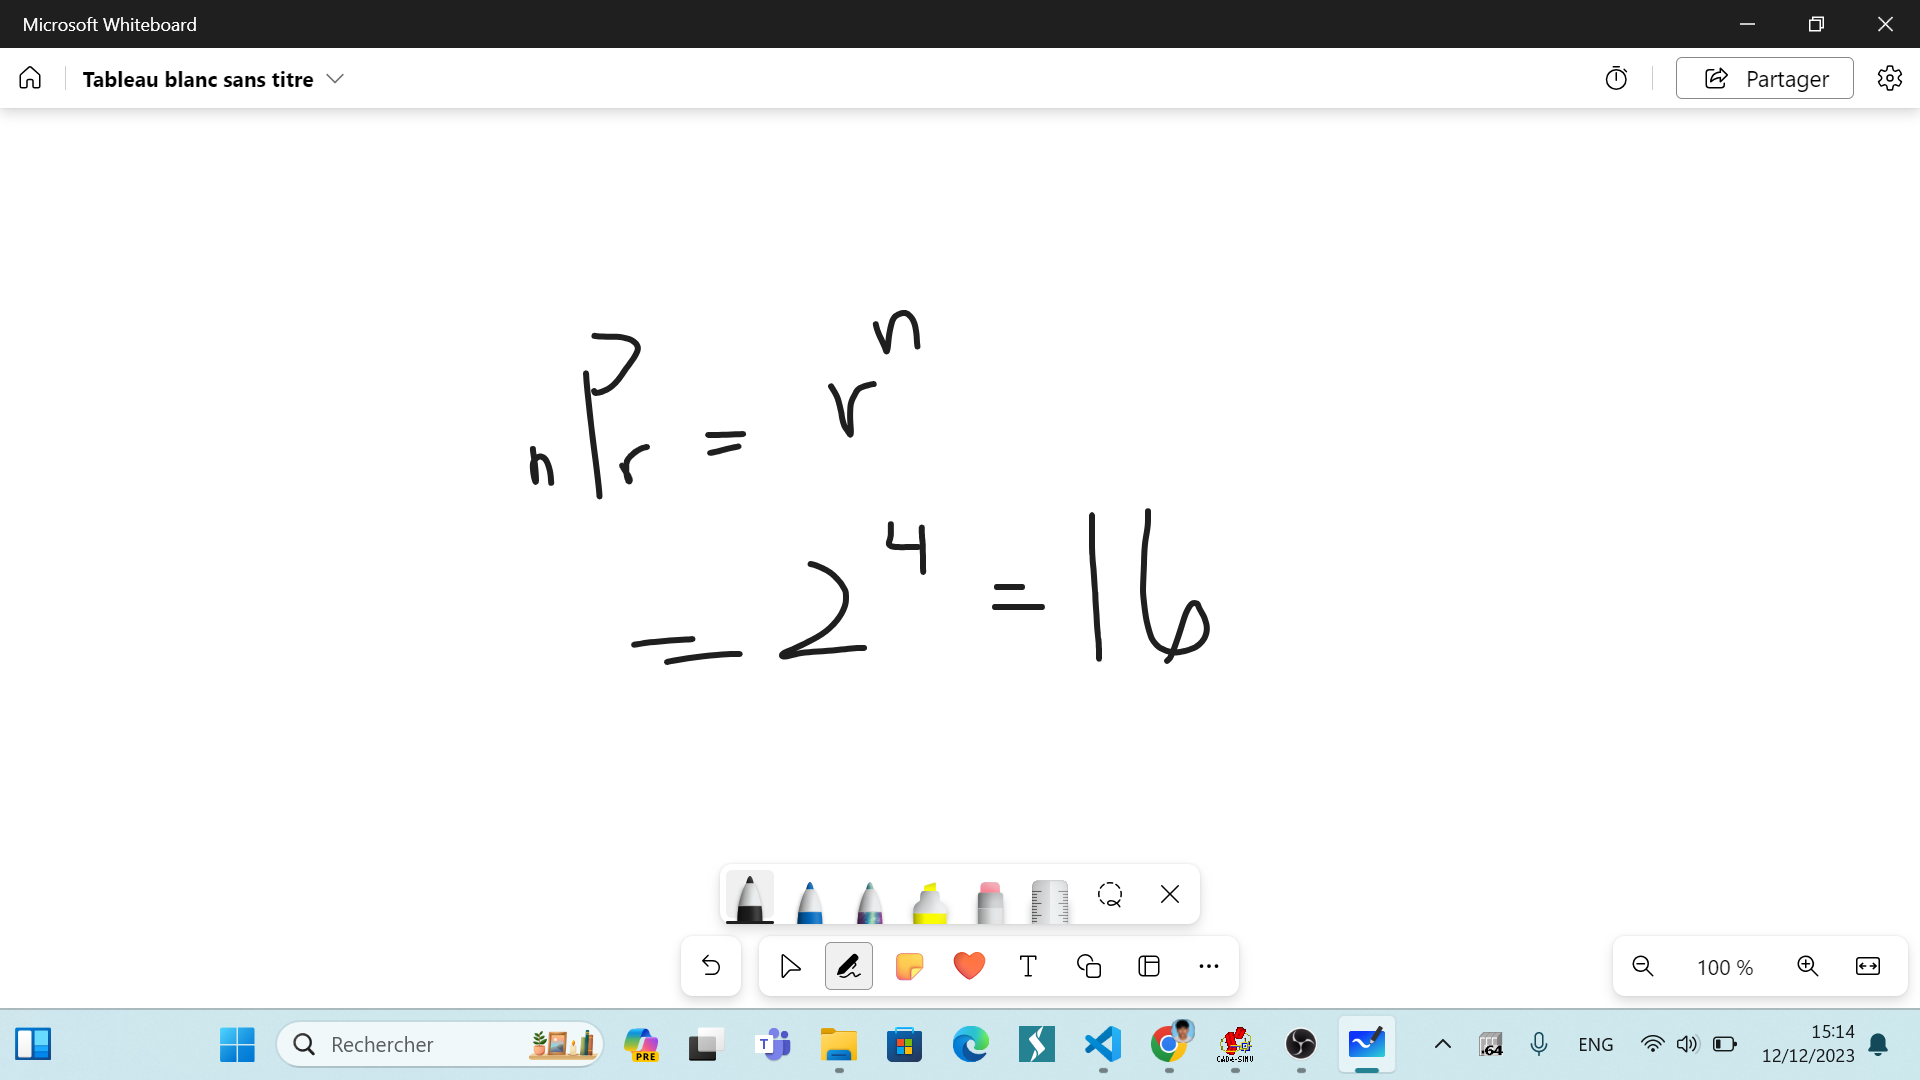 Microsoft Whiteboard
Tableau blanc sans titre
Partager
nPr = r^n
= 2^4 = 16
T
100 %
Rechercher
PRE
T
CADe-SIMU
.64
ENG
15:14
12/12/2023